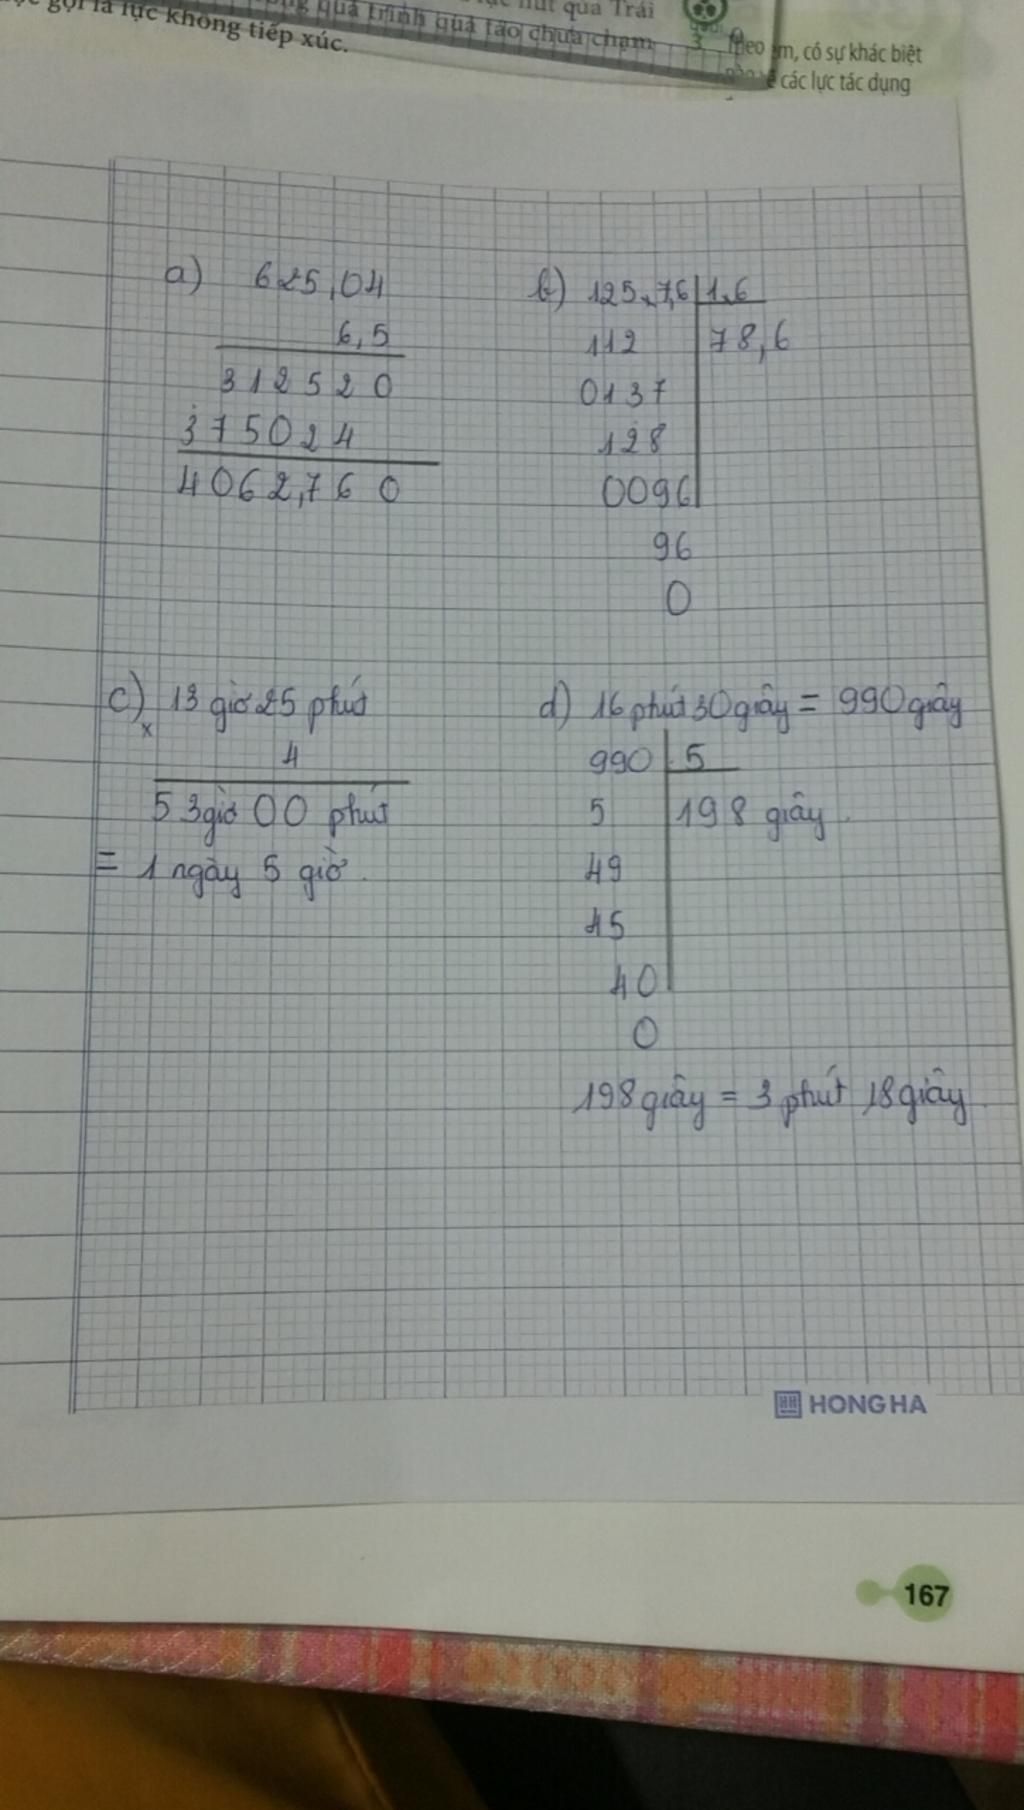 gọi là lực không tiếp xúc.
quá trình quả táo chưa chạm
qua Trái
3. Theo em, có sự khác biệt
các lực tác dụng
a) 625,04
6,5
312520
375024
4062,760
b) 125,7,6 1,6
112 78,6
0137
128
0096
96
0
c) 13 giờ 25 phút
x
4
53 giờ 00 phút
= 1 ngày 5 giờ.
d) 16 phút 30 giây = 990 giây
990 5
5 198 giây
49
45
40
0
198 giây = 3 phút 18 giây
HONG HA
167